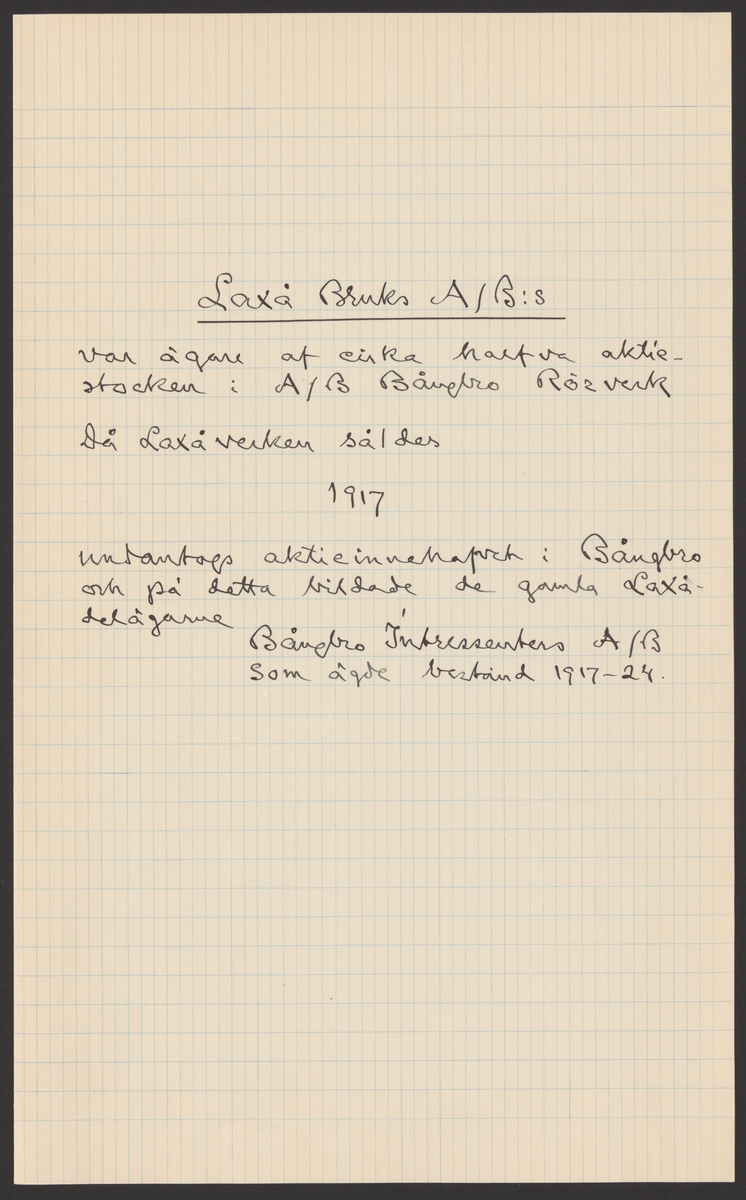 Laxå Bruks A/B:s
var ägare af cirka halfva aktie-
stocken i A/B Bångbro Rörverk
Då Laxåverken såldes
1917
undantogs aktieinnehafvet i Bångbro
och på detta bildade de gamla Laxå-
delägarne
Bångbro Intressenters A/B
som ägde bestånd 1917-24.